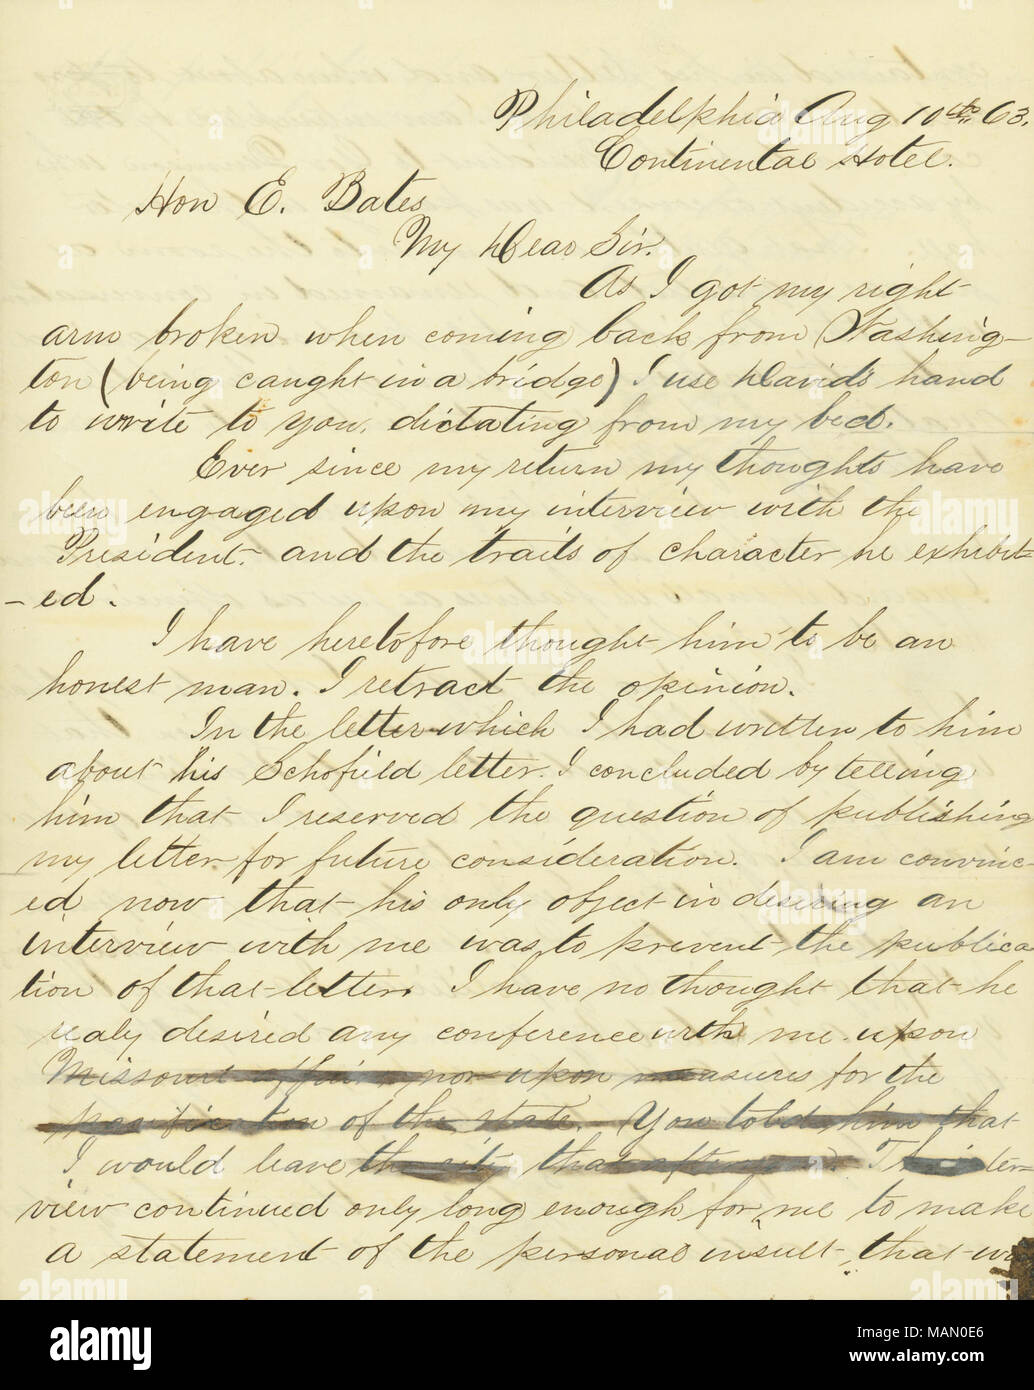 Philadelphia Aug 10th 63.
Continental Hotel.
Hon E. Bates
My Dear Sir.
As I got my right
arm broken when coming back from Washing-
ton (being caught in a bridge) I use David's hand
to write to you, dictating from my bed.
Ever since my return my thoughts have
been engaged upon my interview with the
President. and the traits of character he exhibit-
-ed.
I have heretofore thought him to be an
honest man. I retract the opinion.
In the letter which I had written to him
about his Schofield letter. I concluded by telling
him that I reserved the question of publishing
my letter for future consideration. I am convinc-
ed now that his only object in desiring an
interview with me was to prevent the publica
tion of that letter. I have no thought that he
realy desired any conference with me upon
Missouri affairs nor upon measures for the
pacification of the state. You told him that
I would leave the city that afternoon. The inter-
view continued only long enough for me to make
a statement of the personal insult, that
alamy
Image ID: MAN0E6
www.alamy.com